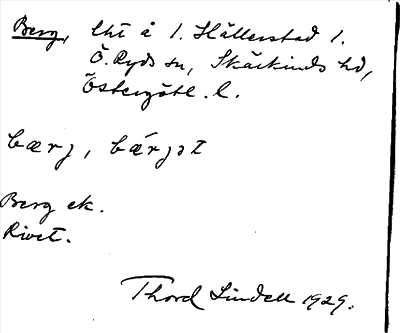 Berg, lht å 1. Hällerstad 1.
Ö. Ryds sn, Skärkinds hd,
Östergötl. l.
bærj, bǽrjət
Berg ek.
Rivet.
Thord Lindell 1929.